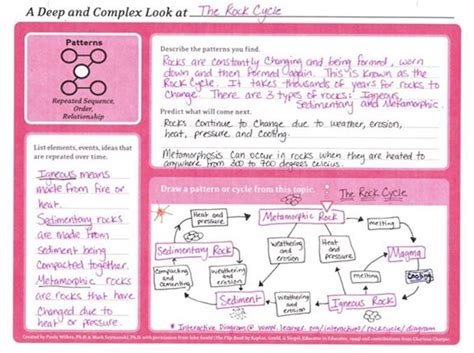 A Deep and Complex Look at The Rock Cycle
Patterns
Repeated Sequence,
Order,
Relationship
Describe the patterns you find.
Rocks are constantly changing and being formed, worn
down and then formed again. This is known as the
Rock Cycle. It takes thousands of years for rocks to
change. There are 3 types of rocks: Igneous,
Sedimentary and Metamorphic.
Predict what will come next.
Rocks continue to change due to weather, erosion,
heat, pressure and cooling.
Metamorphosis can occur in rocks when they are heated to
anywhere from 200 to 700 degrees celcius.
List elements, events, ideas that
are repeated over time.
Igneous means
made from fire or
heat.
Sedimentary rocks
are made from
sediment being
compacted together.
Metamorphic rocks
are rocks that have
changed due to
heat or pressure.
Draw a pattern or cycle from this topic.
The Rock Cycle
Heat and
pressure
Metamorphic Rock
melting
Sedimentary Rock
weathering
and erosion
Heat and
pressure
Magma
Compacting
and
cementing
weathering
and erosion
melting
cooling
Sediment
weathering
and erosion
Igneous Rock
* Interactive Diagram @ www.learner.org/interactives/rockcycle/diagram